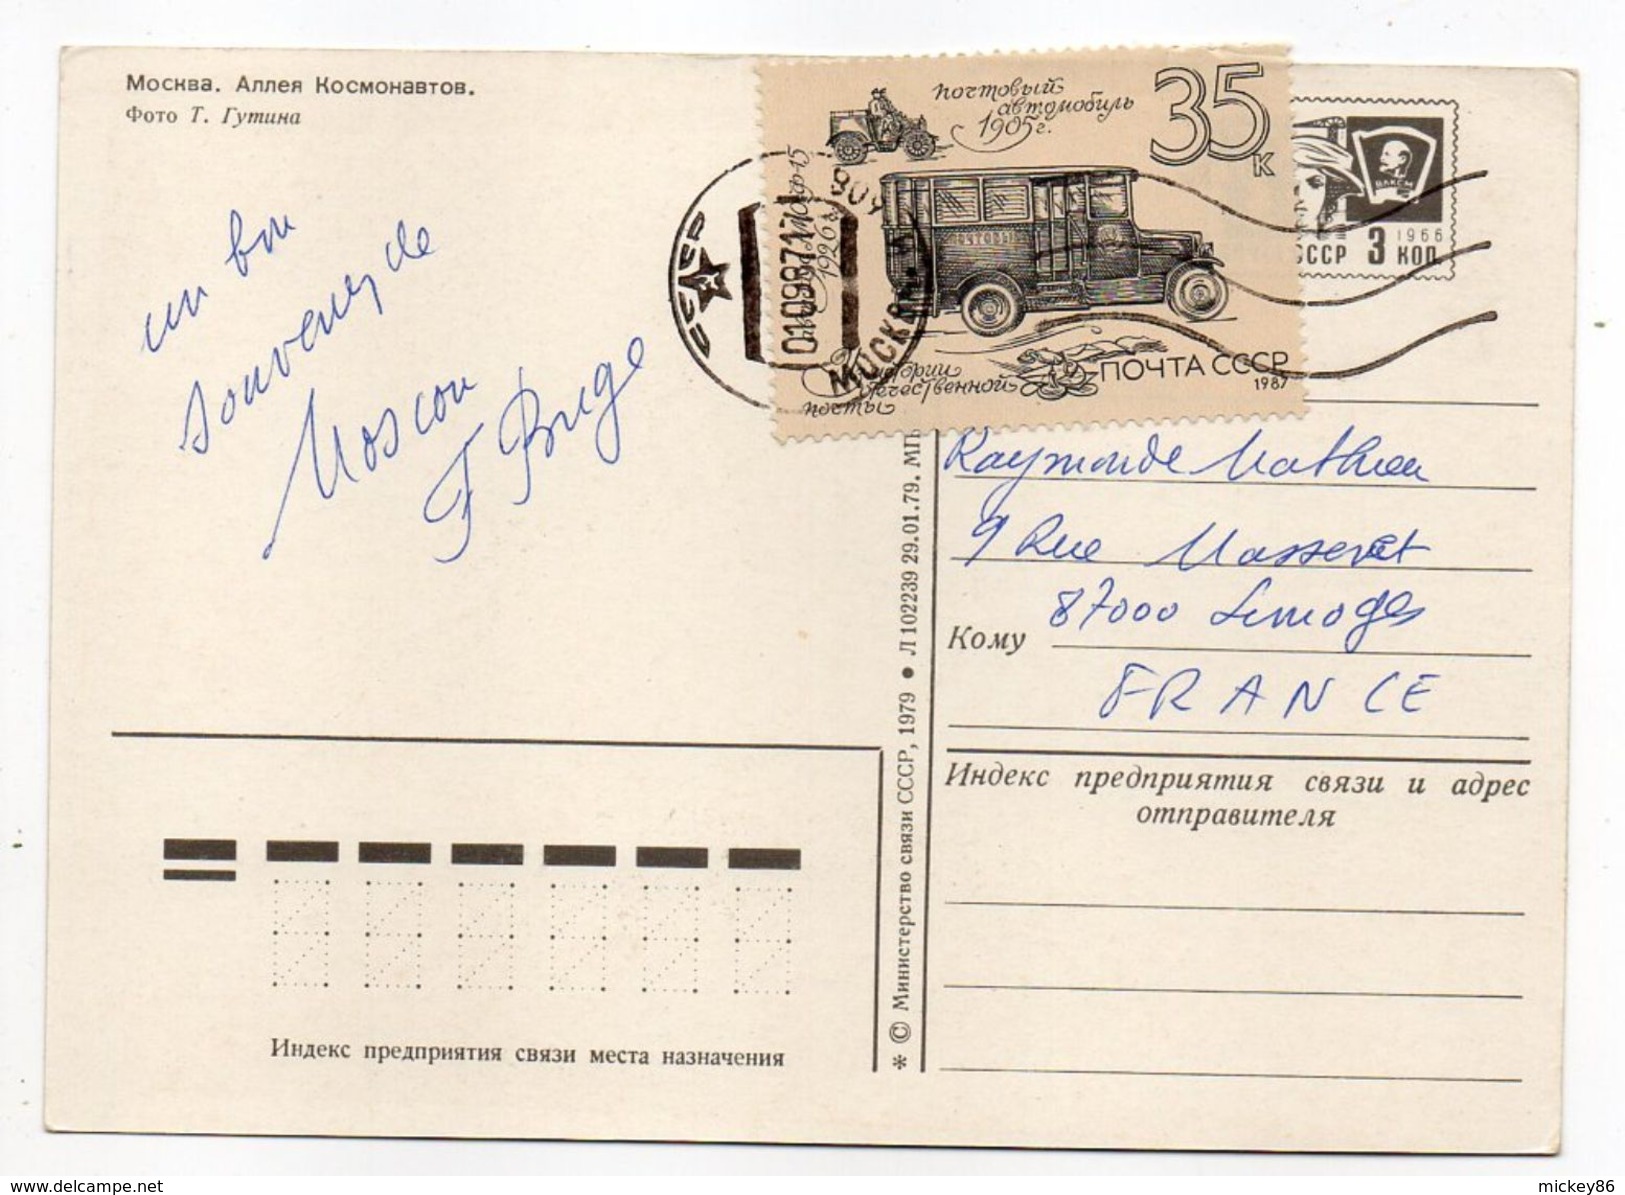 Москва. Аллея Космонавтов.
Фото Т. Гутина
почтовый
автомобиль
1905г.
35
к
1926г.
ПОЧТОВЫ
Из истории
отечественной
почты
ПОЧТА СССР
1987
СССР
01098717
МОСКВА
ВЛКСМ
1966
СССР 3 КОП.
un bon
souvenir de
Moscou
Raymonde Mathieu
9 Rue Masseret
87000 Limoges
Кому
FRANCE
Индекс предприятия связи и адрес
отправителя
* © Министерство связи СССР, 1979 • Л 102239 29.01.79. МП
Индекс предприятия связи места назначения
www.delcampe.net
mickey86